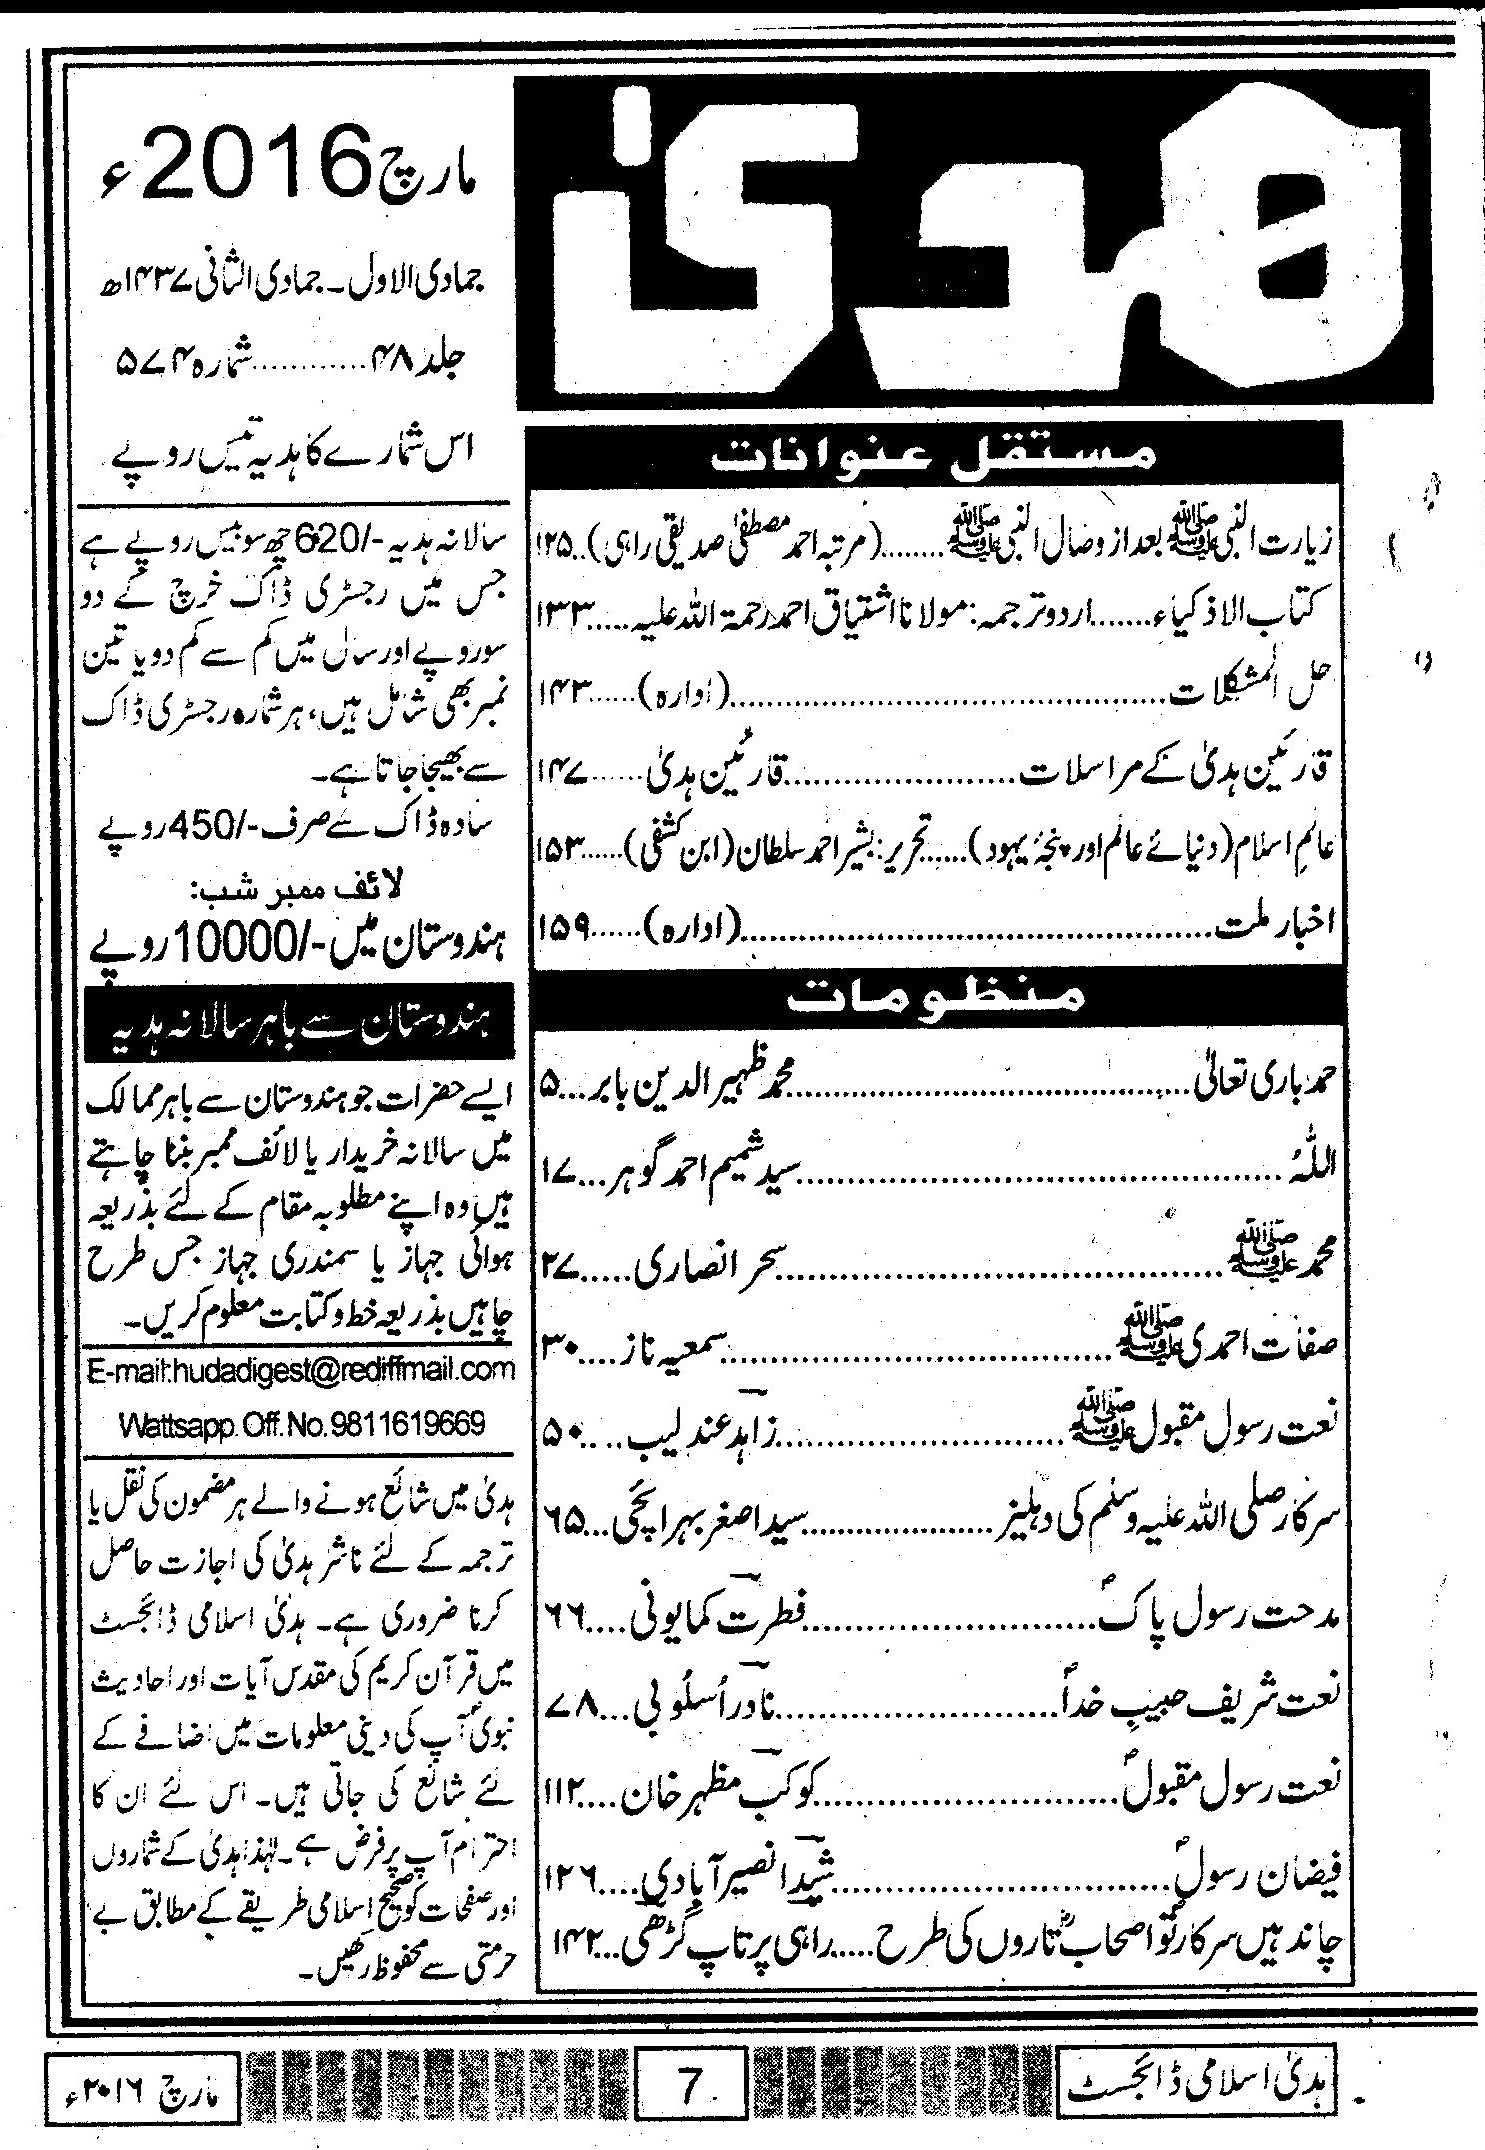 ھدیٰ
مستقل عنوانات
زیارت النبی ﷺ بعد از وصال النبی ﷺ........(مرتبہ احمد مصطفیٰ صدیقی راہی)..۱۲۵
کتاب الاذکیاء.......اردو ترجمہ: مولانا اشتیاق احمد رحمۃ اللہ علیہ.....۱۳۳
حل المشکلات............................................(ادارہ)......۱۴۳
قارئین ہدیٰ کے مراسلات........................قارئین ہدیٰ......۱۴۷
عالمِ اسلام (دنیائے عالم اور پنجۂ یہود)......تحریر: بشیر احمد سلطان (ابن کشفی)......۱۵۳
اخبار ملت................................................(ادارہ)......۱۵۹
منظومات
حمد باری تعالیٰ........................................محمد ظہیر الدین بابر...۵
اللہُ................................................سید شمیم احمد گوہر...۱۷
محمد ﷺ.............................................سحر انصاری.....۲۷
صفات احمدی ﷺ.......................................سمعیہ ناز....۳۰
نعت رسول مقبول ﷺ.............................زاہد عندلیب....۵۰
سرکار صلی اللہ علیہ وسلم کی دہلیز...................سید اصغر بہرائچی...۶۵
مدحت رسول پاکؐ.............................فطرت کمایونی....۶۶
نعت شریف حبیبِ خداؐ............................نادر اُسلُوبی...۷۸
نعت رسول مقبولؐ..............................کوکب مظہر خان....۱۱۲
فیضان رسولؐ..................................شیدا نصیرآبادی....۱۲۶
چاند ہیں سرکارؐ تو اصحابؓ تاروں کی طرح.....راہی پرتاپ گڑھی...۱۴۲
مارچ 2016ء
جمادی الاول۔ جمادی الثانی ۱۴۳۷ھ
جلد ۴۸............شمارہ ۵۷۴
اس شمارے کا ہدیہ تیس روپے
سالانہ ہدیہ -/620 چھ سو بیس روپے ہے
جس میں رجسٹری ڈاک خرچ کے دو
سو روپے اور سال میں کم سے کم دو یا تین
نمبر بھی شامل ہیں، ہر شمارہ رجسٹری ڈاک
سے بھیجا جاتا ہے۔
سادہ ڈاک سے صرف -/450 روپے
لائف ممبر شب:
ہندوستان میں -/10000 روپے
ہندوستان سے باہر سالانہ ہدیہ
ایسے حضرات جو ہندوستان سے باہر ممالک
میں سالانہ خریدار یا لائف ممبر بننا چاہتے
ہیں وہ اپنے مطلوبہ مقام کے لئے بذریعہ
ہوائی جہاز یا سمندری جہاز جس طرح
چاہیں بذریعہ خط و کتابت معلوم کریں۔
E-mail:hudadigest@rediffmail.com
Wattsapp. Off. No. 9811619669
ہدیٰ میں شائع ہونے والے ہر مضمون کی نقل یا
ترجمہ کے لئے ناشر ہدیٰ کی اجازت حاصل
کرنا ضروری ہے۔ ہدیٰ اسلامی ڈائجسٹ
میں قرآن کریم کی مقدس آیات اور احادیث
نبویؐ آپ کی دینی معلومات میں اضافے کے
لئے شائع کی جاتی ہیں۔ اس لئے ان کا
احترام آپ پر فرض ہے۔ لہٰذا ہدیٰ کے شماروں
اور صفحات کو صحیح اسلامی طریقے کے مطابق بے
حرمتی سے محفوظ رکھیں۔
ہدیٰ اسلامی ڈائجسٹ
7
مارچ ۲۰۱۶ء